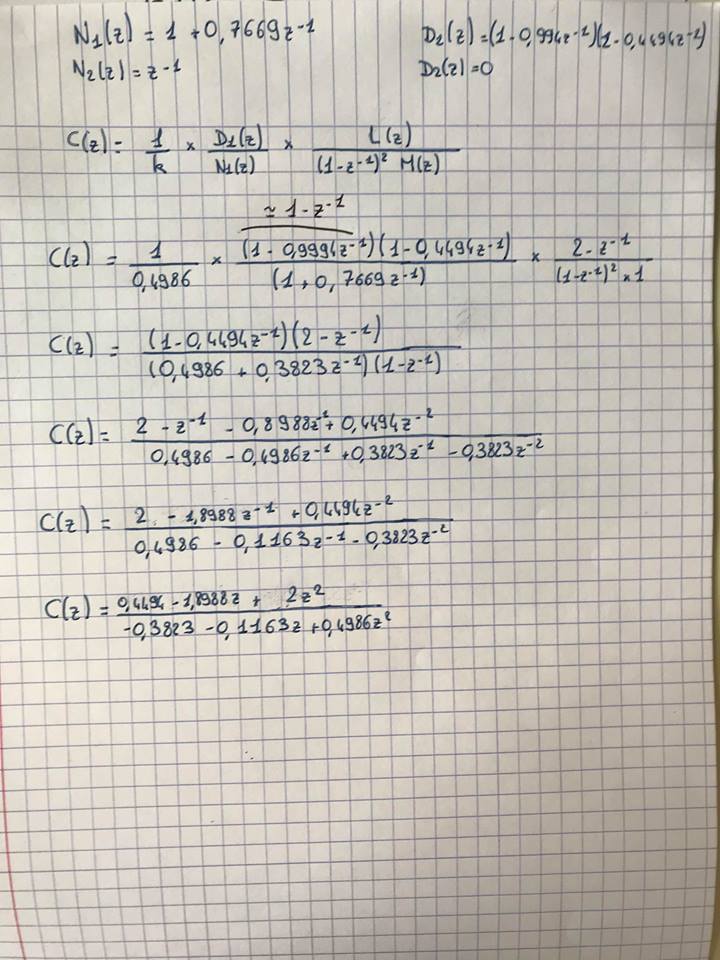 N₁(z) = 1 + 0,7669z⁻¹ D₁(z) = (1 - 0,994z⁻¹)(1 - 0,4494z⁻¹)
N₂(z) = z⁻¹ D₂(z) = 0
C(z) = 1/k × D₁(z)/N₁(z) × L(z)/((1 - z⁻¹)² M(z))
≃ 1 - z⁻¹
C(z) = 1/0,4986 × (1 - 0,9994z⁻¹)(1 - 0,4494z⁻¹)/(1 + 0,7669z⁻¹) × (2 - z⁻¹)/((1 - z⁻¹)² × 1)
C(z) = (1 - 0,4494z⁻¹)(2 - z⁻¹)/((0,4986 + 0,3823z⁻¹)(1 - z⁻¹))
C(z) = (2 - z⁻¹ - 0,8988z⁻¹ + 0,4494z⁻²)/(0,4986 - 0,4986z⁻¹ + 0,3823z⁻¹ - 0,3823z⁻²)
C(z) = (2 - 1,8988z⁻¹ + 0,4494z⁻²)/(0,4986 - 0,1163z⁻¹ - 0,3823z⁻²)
C(z) = (0,4494 - 1,8988z + 2z²)/(-0,3823 - 0,1163z + 0,4986z²)